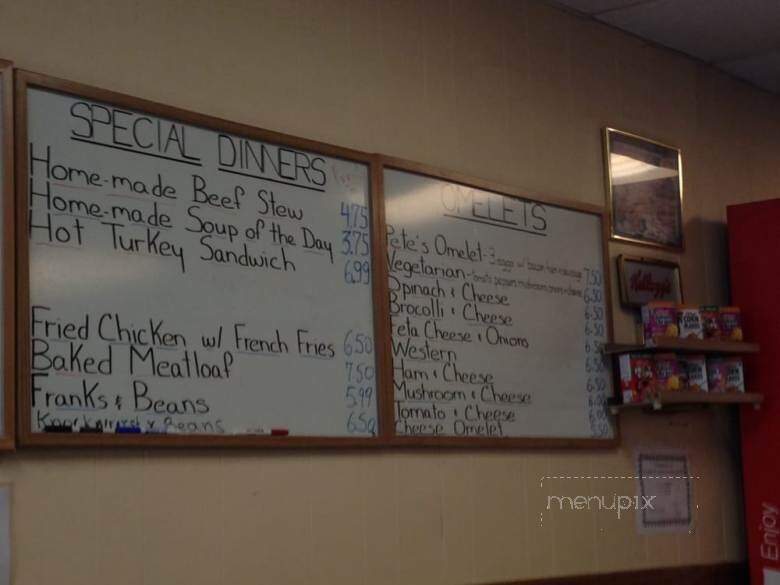 SPECIAL DINNERS
Home-made Beef Stew 4.75
Home-made Soup of the Day 3.75
Hot Turkey Sandwich 6.99
Fried Chicken w/ French Fries 6.50
Baked Meatloaf 7.50
Franks & Beans 5.99
Knockwurst & Beans 6.50
OMELETS
Pete's Omelet - 3 eggs w/ bacon ham & sausage 7.50
Vegetarian - tomato peppers mushrooms onions & cheese 6.50
Spinach & Cheese 6.50
Brocolli & Cheese 6.50
Feta Cheese & Onions 6.50
Western
Ham & Cheese 6.50
Mushroom & Cheese 6.00
Tomato & Cheese 6.00
Cheese Omelet 5.50
Kellogg's
CORN
Enjoy
menupix